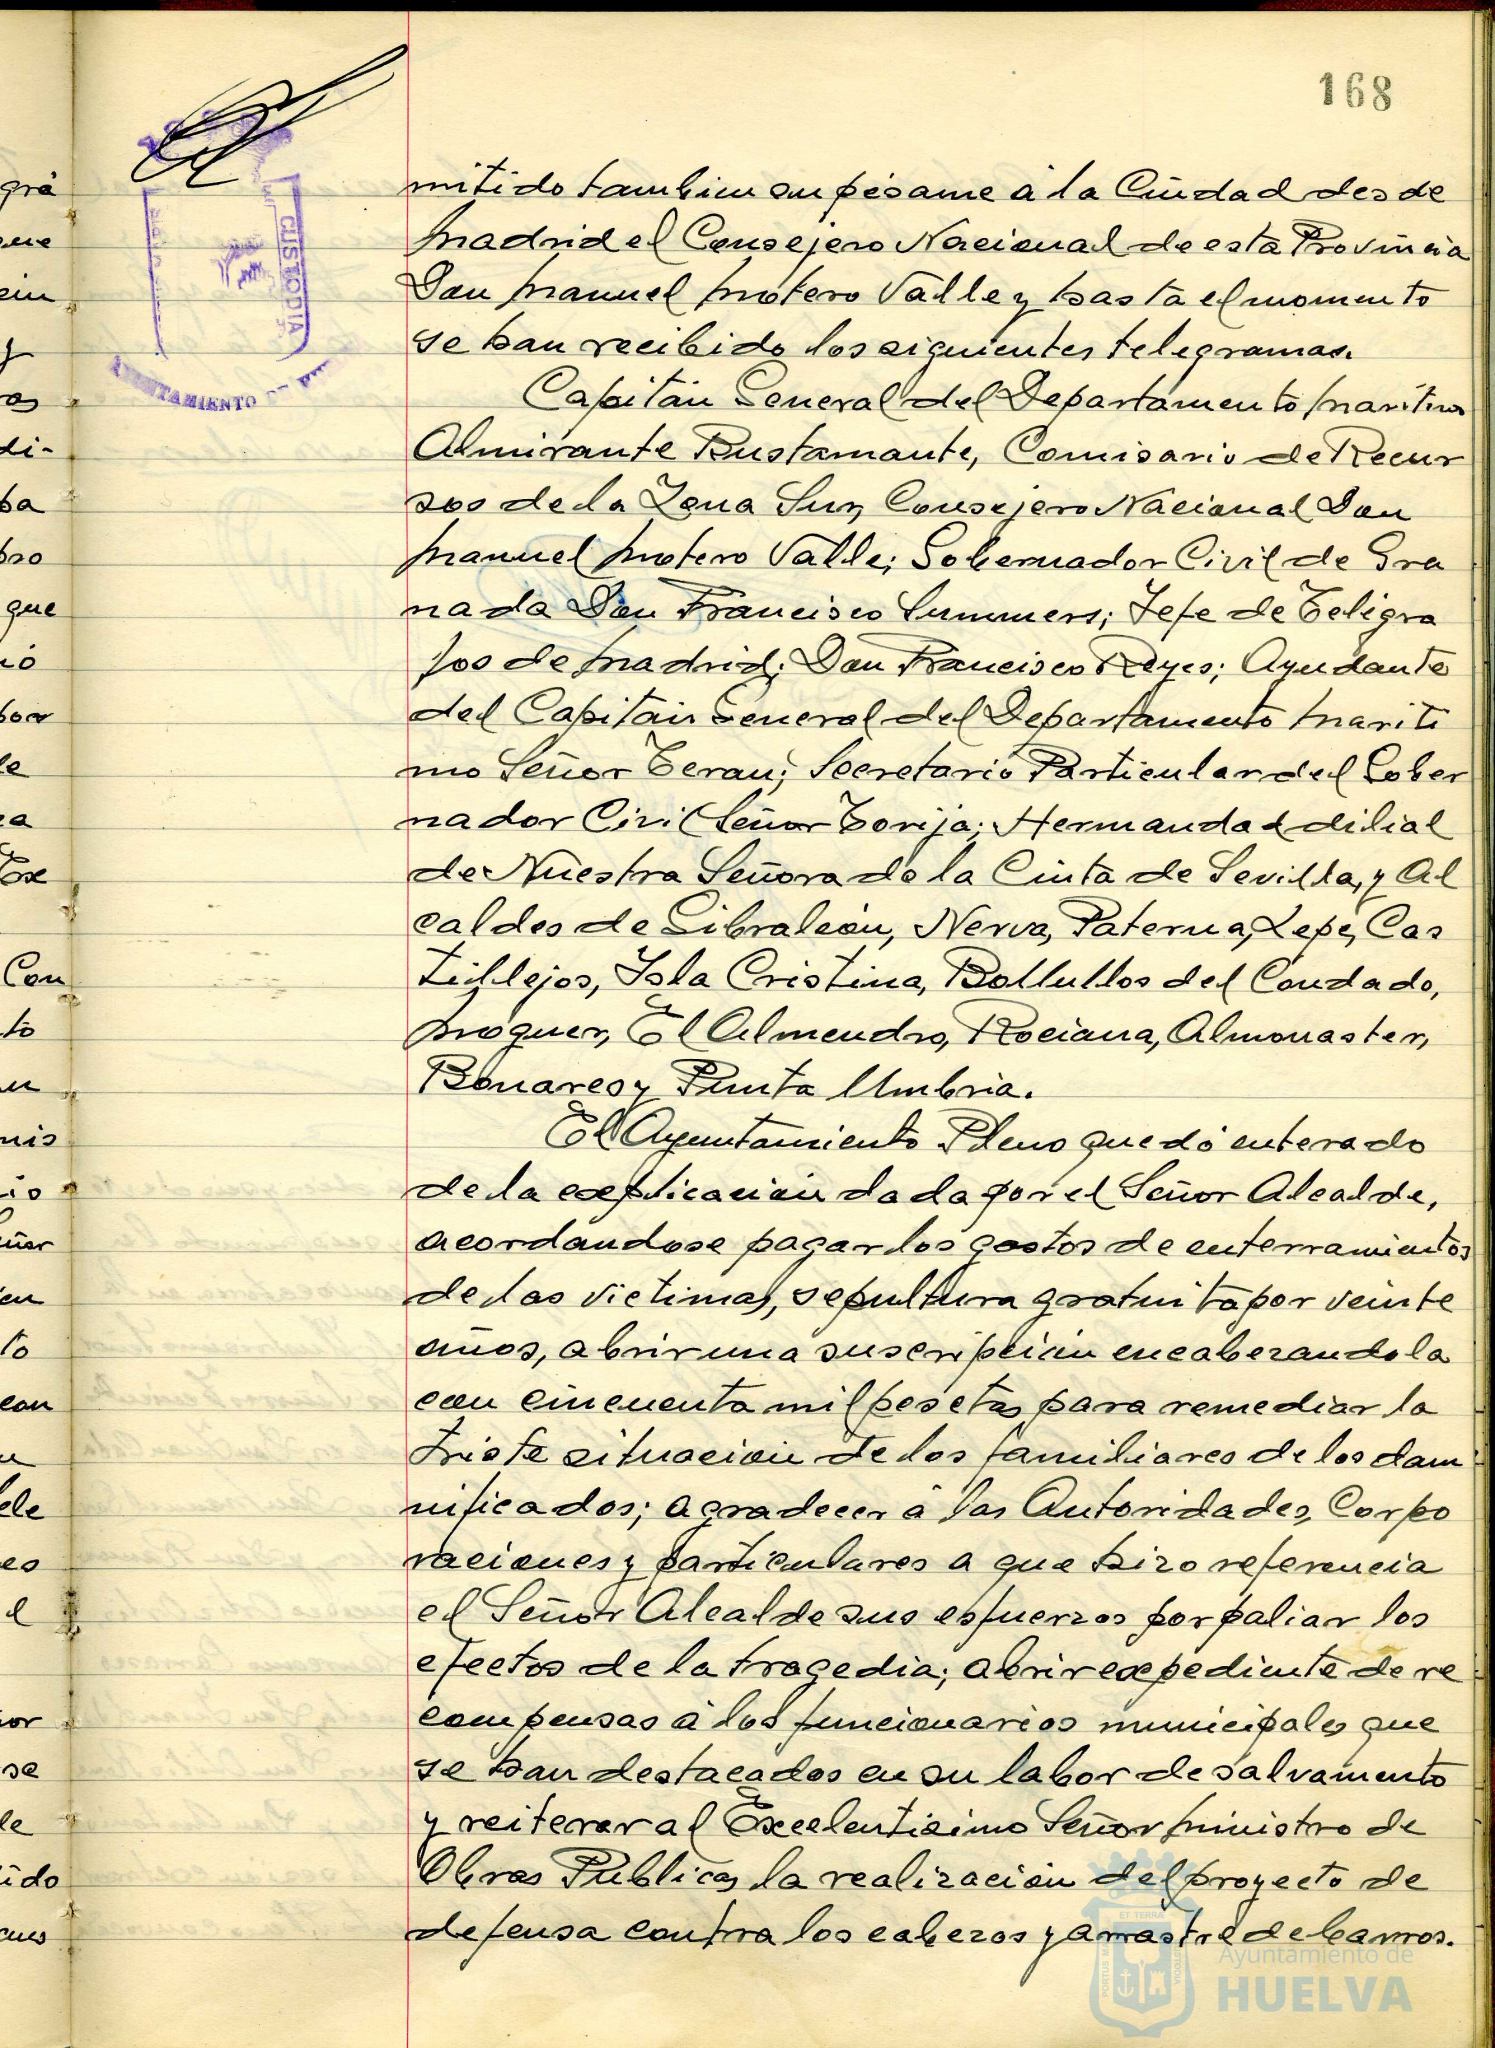 168
mitido tambien su pésame á la Ciudad desde
Madrid el Consejero Nacional de esta Provincia
Don Manuel Motero Valle y hasta el momento
se han recibido los siguientes telegramas.
Capitán General del Departamento Maritimo
Almirante Bustamante, Comisario de Recur
sos de la Zona Sur, Consejero Nacional Don
Manuel Motero Valle; Gobernador Civil de Gra
nada Don Francisco Summers; Jefe de Telégra
fos de Madrid; Don Francisco Reyes; Ayudante
del Capitán General del Departamento Mariti
mo Señor Teran; Secretario Particular del Gober
nador Civil Señor Torija; Hermandad dilial
de Nuestra Señora de la Cinta de Sevilla, y Al
caldes de Gibraleón, Nerva, Paterna, Lepe, Cas
tillejos, Isla Cristina, Bollullos del Condado,
Moguer, El Almendro, Rociana, Almonaster,
Bonares y Punta Umbria.
El Ayuntamiento Pleno quedó enterado
de la explicación dada por el Señor Alcalde,
acordandose pagar los gastos de enterramientos
de las victimas, sepultura gratuita por veinte
años, abrir una suscripción encabezandola
con cincuenta mil pesetas para remediar la
triste situación de los familiares de los dam
nificados; agradecer á las Autoridades, Corpo
raciones y particulares a que hizo referencia
el Señor Alcalde sus esfuerzos por paliar los
efectos de la tragedia; abrir expediente de re
compensas á los funcionarios municipales que
se han destacados en su labor de salvamento
y reiterar al Excelentisimo Señor Ministro de
Obras Públicas, la realización del proyecto de
defensa contra los cabezos y arrastre de barros.
CUSTODIA
AYUNTAMIENTO DE
Ayuntamiento de
HUELVA